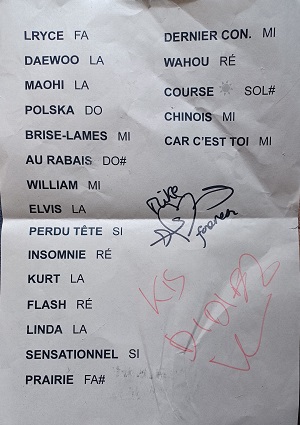 LRYCE FA
DAEWOO LA
MAOHI LA
POLSKA DO
BRISE-LAMES MI
AU RABAIS DO#
WILLIAM MI
ELVIS LA
PERDU TÊTE SI
INSOMNIE RÉ
KURT LA
FLASH RÉ
LINDA LA
SENSATIONNEL SI
PRAIRIE FA#
DERNIER CON. MI
WAHOU RÉ
COURSE SOL#
CHINOIS MI
CAR C'EST TOI MI
Mike
forever
KIS